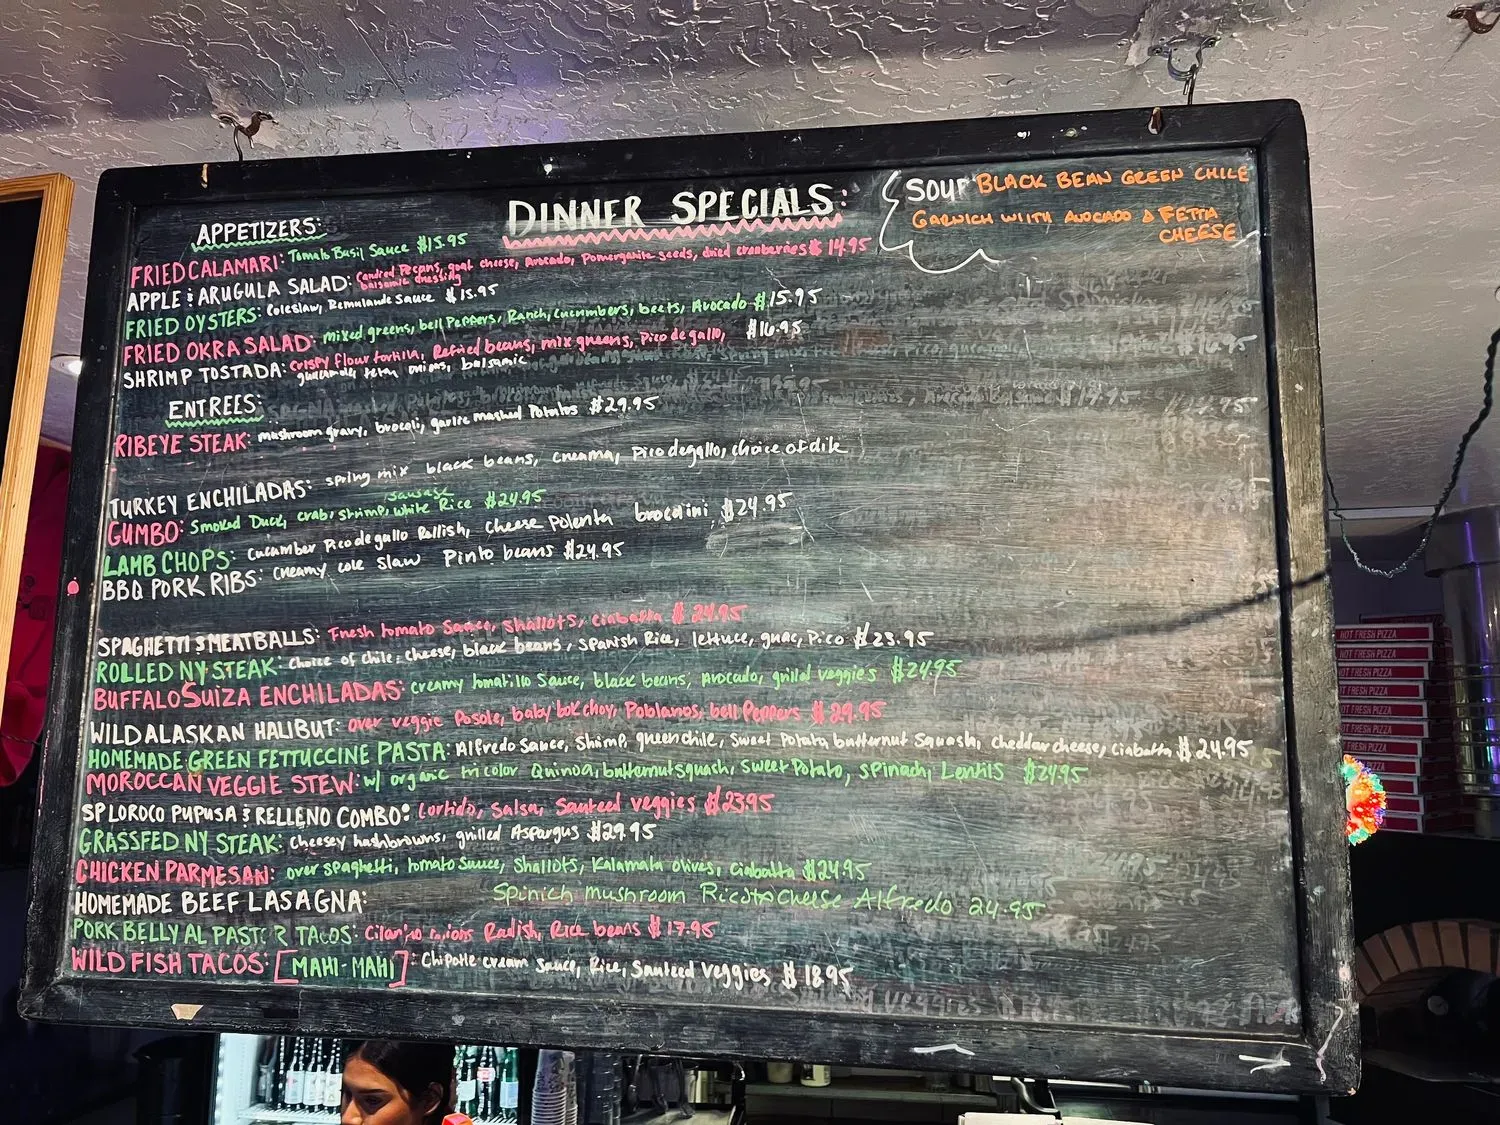 DINNER SPECIALS:
SOUP BLACK BEAN GREEN CHILE
GARNICH WIITH AVOCADO & FETTA
CHEESE
APPETIZERS:
FRIED CALAMARI: Tomato Basil Sauce $15.95
APPLE & ARUGULA SALAD: Candied Pecans, goat cheese, Avocado, Pomergranite seeds, dried cranberries $14.95
balsamic dressing
FRIED OYSTERS: Coleslaw, Remulaude Sauce $15.95
FRIED OKRA SALAD: mixed greens, bell Peppers, Ranch, cucumbers, beets, Avocado $15.95
SHRIMP TOSTADA: Crispy flour tortilla, Refried beans, mix greens, Pico de gallo, $16.95
onions, balsamic
ENTREES:
RIBEYE STEAK: mushroom gravy, brocoli, garlic mashed Potatos $29.95
TURKEY ENCHILADAS: spring mix black beans, crema, Pico de gallo, choice of
GUMBO: Smoked Duck, crab, shrimp, sausage white Rice $24.95
LAMB CHOPS: Cucumber Pico de gallo Rellish, cheese Polenta brocolini $24.95
BBQ PORK RIBS: creamy cole slaw Pinto beans $24.95
SPAGHETTI & MEATBALLS: Fresh tomato Sauce, Shallots, ciabatta $24.95
ROLLED NY STEAK: Choice of chile, cheese, black beans, Spanish Rice, lettuce, guac, Pico $23.95
BUFFALO SUIZA ENCHILADAS: creamy tomatillo Sauce, black beans, Avocado, grilled veggies $24.95
WILD ALASKAN HALIBUT: over veggie Posole, baby bok choy, Poblanos, bell Peppers $29.95
HOMEMADE GREEN FETTUCCINE PASTA: Alfredo Sauce, Shrimp, green chile, Sweet Potato, butternut Squash, cheddar cheese, Ciabatta $24.95
MOROCCAN VEGGIE STEW: w/ organic tricolor Quinoa, butternut squash, Sweet Potato, spinach, Lentils $24.95
SP LOROCO PUPUSA & RELLENO COMBO: Cortido, Salsa, Sauteed veggies $23.95
GRASSFED NY STEAK: Cheesey hashbrowns, grilled Aspargus $29.95
CHICKEN PARMESAN: over spaghetti, tomato Sauce, Shallots, Kalamata olives, ciabatta $24.95
HOMEMADE BEEF LASAGNA: Spinich mushroom Ricotta Cheese Alfredo 24.95
PORK BELLY AL PASTOR TACOS: Cilantro onions Radish, Rice beans $17.95
WILD FISH TACOS: [MAHI-MAHI]: Chipotle cream sauce, Rice, Sauteed Veggies $18.95
HOT FRESH PIZZA
HOT FRESH PIZZA
HOT FRESH PIZZA
HOT FRESH PIZZA
HOT FRESH PIZZA
HOT FRESH PIZZA
HOT FRESH PIZZA